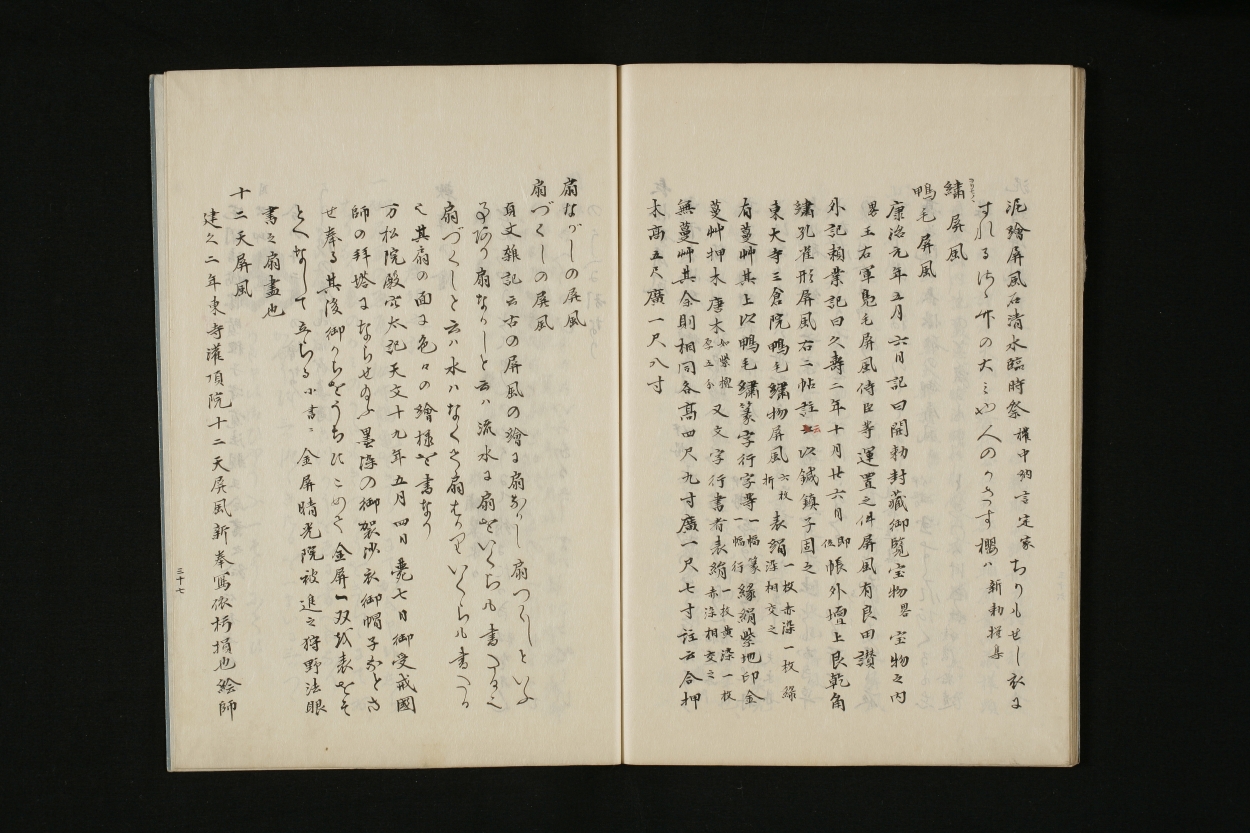 泥繪屏風石清水臨時祭 權中納言定家 ちりもせし衣に
すれるさゝ竹の大みや人のかさす櫻は 新勅撰集
繡屏風
鴨毛屏風
康治元年五月六日記曰開勅封藏御覧宝物畧宝物之内
畧王右軍鳬毛屏風侍臣等運置之件屏風有良田讃
外記頼業記曰久壽二年十月廿六日 即位 帳外壇上艮乾角
繡孔雀形屏風右二帖註云以鍼鎮子固之
東大寺三倉院鴨毛繡物屏風 六枚折 表絹 一枚赤染一枚緑染相交之
有蔓艸其上以鴨毛繡篆字行字等 一幅篆一幅行 縁絹紫地印金
蔓艸押木唐木 如紫檀厚五分 又文字行書者表絹 一枚黄染一枚赤染相交之
無蔓艸其余則相同各高四尺九寸廣一尺七寸註云合押
木高五尺廣一尺八寸
扇ながしの屏風
扇づくしの屏風
貞丈雑記云古の屏風の繪に扇ながし扇つくしといふ
事あり扇ながしと云ハ流水に扇をいくらも書たる也
扇づくしと云ハ水ハなくて扇はかりいくらも書たる
也其扇の面に色々の繪様を書なり
万松院殿穴太記天文十九年五月四日甍七日御受戒國
師の拜塔にならせ給ふ墨染の御袈沙衣御帽子おとさ
せ奉る其後御からをうちにこめて金屏一双を表をそ
とへなして立らる 小書ニ 金屏晴光院被進之狩野法眼
書之扇畫也
十二天屏風
建久二年東寺灌頂院十二天屏風新奉寫依朽損也絵師
三十七